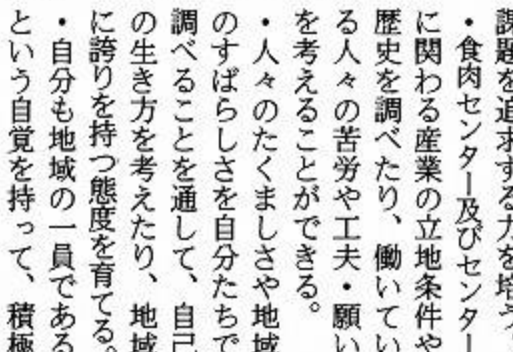 課題を追求する力を培う
・食肉センター及びセンター
に関わる産業の立地条件や
歴史を調べたり、働いてい
る人々の苦労や工夫・願い
を考えることができる。
・人々のたくましさや地域
のすばらしさを自分たちで
調べることを通して、自己
の生き方を考えたり、地域
に誇りを持つ態度を育てる。
・自分も地域の一員である
という自覚を持って、積極